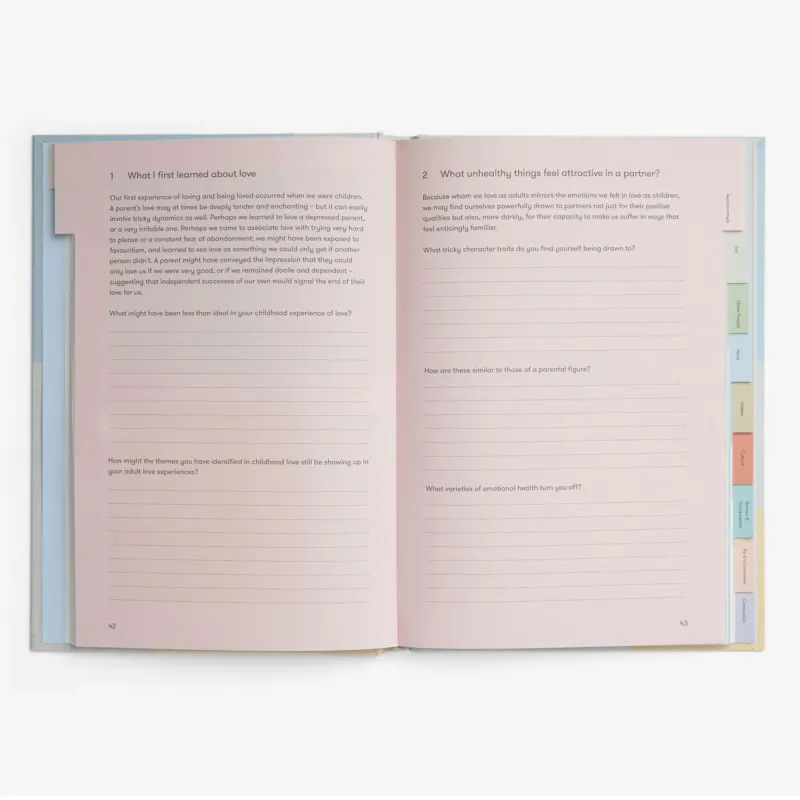 1 What I first learned about love
Our first experience of loving and being loved occurred when we were children.
A parent's love may at times be deeply tender and enchanting – but it can easily
involve tricky dynamics as well. Perhaps we learned to love a depressed parent,
or a very irritable one. Perhaps we came to associate love with trying very hard
to please or a constant fear of abandonment; we might have been exposed to
favouritism, and learned to see love as something we could only get if another
person didn't. A parent might have conveyed the impression that they could
only love us if we were very good, or if we remained docile and dependent –
suggesting that independent successes of our own would signal the end of their
love for us.
What might have been less than ideal in your childhood experience of love?
How might the themes you have identified in childhood love still be showing up in
your adult love experiences?
42
2 What unhealthy things feel attractive in a partner?
Because whom we love as adults mirrors the emotions we felt in love as children,
we may find ourselves powerfully drawn to partners not just for their positive
qualities but also, more darkly, for their capacity to make us suffer in ways that
feel enticingly familiar.
What tricky character traits do you find yourself being drawn to?
How are these similar to those of a parental figure?
What varieties of emotional health turn you off?
43
Relationships
Sex
Other People
Work
Culture
Sorrow &
Compassion
Re-Enchantment
Conclusion